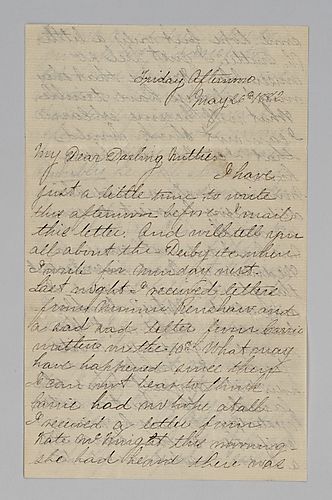 Friday Afternoon
May 26th 1882
My Dear Darling Mother
I have
just a little time to write
this afternoon before I mail
this letter. And will tell you
all about the Derby etc when
I write for Monday next.
Last night I received letters
from Minnie Renshaw and
a sad sad letter from Carrie
written on the 10th. What may
have happened since then
I can not bear to think
Carrie had no hope at all.
I received a letter from
Kate McKnight this morning
she had heard there was